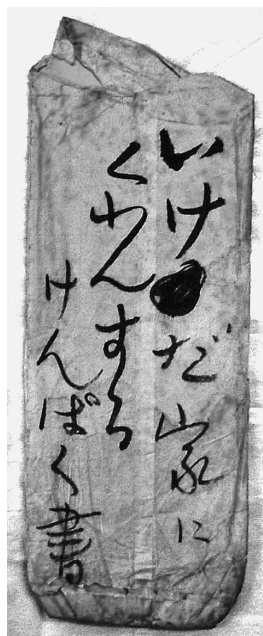 いけだ家に
くわんする
けんぱく書